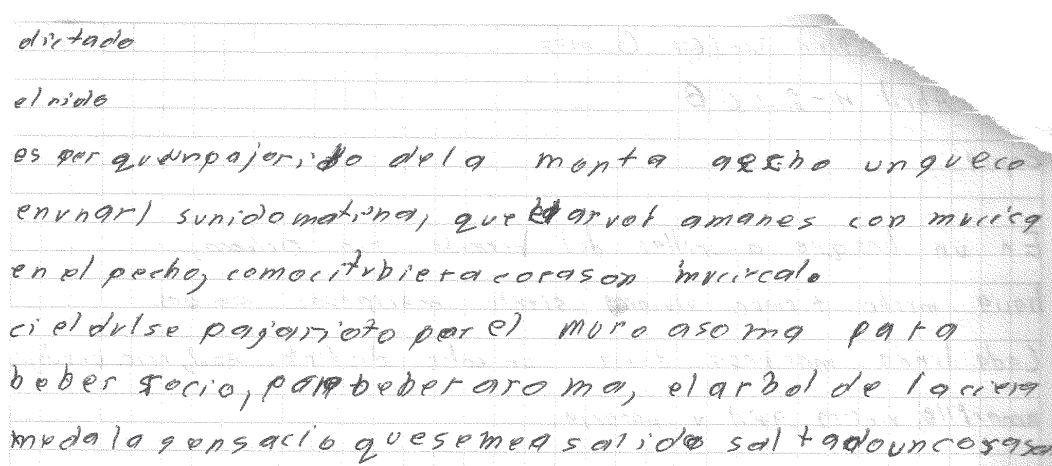 dictado
el nido
es por qu unpajorito dela monta aecho ungueco
envnarl sunidomatina, que arvol amanes con mucicq
en el pecho, comocitubiera corason mucircal.
ci eldulse pagarioto por el muro asoma para
beber rocio, para beber aroma, elarbol de laciera
medala sensacio quesemea salido saltadouncorason